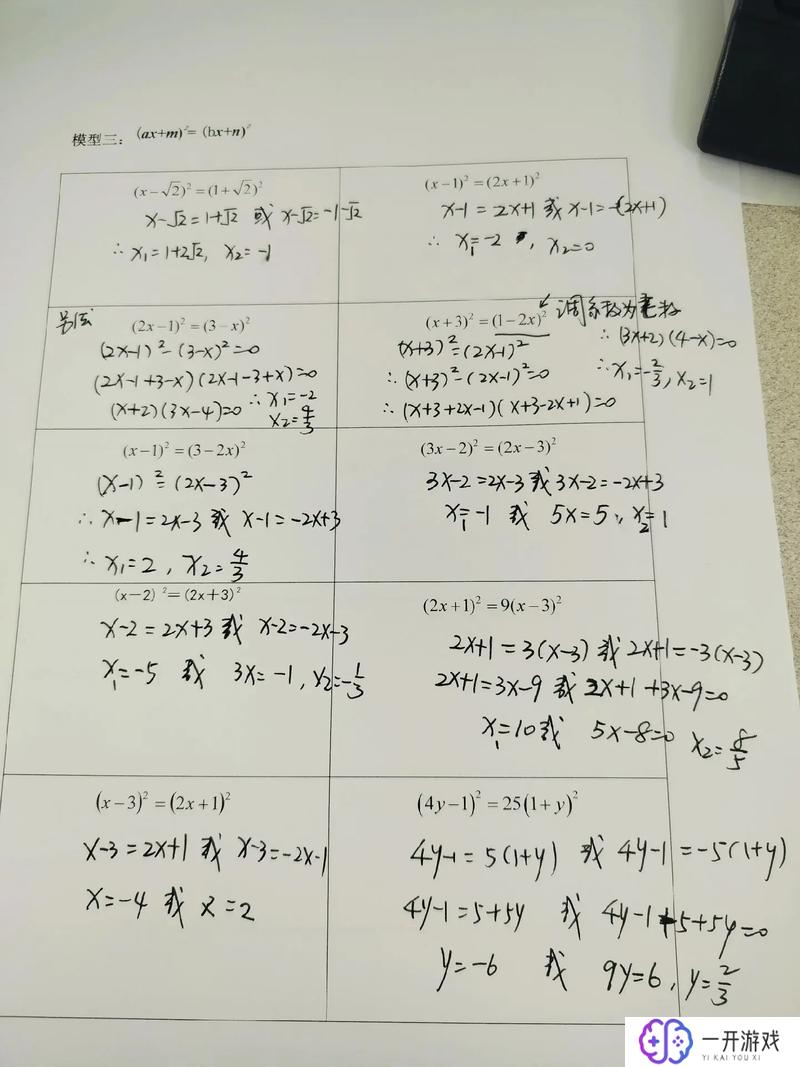 模型三： (ax+m)²= (bx+n)²
(x-√2)²=(1+√2)²
x-√2=1+√2 或 x-√2=-1-√2
∴ x₁=1+2√2, x₂=-1
(x-1)²=(2x+1)²
x-1=2x+1 或 x-1=-(2x+1)
∴ x₁=-2, x₂=0
另法
(2x-1)²=(3-x)²
(2x-1)²-(3-x)²=0
(2x-1+3-x)(2x-1-3+x)=0
(x+2)(3x-4)=0 ∴ x₁=-2
x₂=4/3
(x+3)²=(1-2x)² 调系数为
(x+3)²=(2x-1)²
∴ (x+3)²-(2x-1)²=0
∴ (x+3+2x-1)(x+3-2x+1)=0
∴ (3x+2)(4-x)=0
∴ x₁=-2/3, x₂=1
(x-1)²=(3-2x)²
(x-1)²=(2x-3)²
∴ x-1=2x-3 或 x-1=-2x+3
∴ x₁=2, x₂=4/3
(3x-2)²=(2x-3)²
3x-2=2x-3 或 3x-2=-2x+3
x₁=-1 或 5x=5, x₂=1
(x-2)²=(2x+3)²
x-2=2x+3 或 x-2=-2x-3
x₁=-5 或 3x=-1, x₂=-1/3
(2x+1)²=9(x-3)²
2x+1=3(x-3) 或 2x+1=-3(x-3)
2x+1=3x-9 或 2x+1+3x-9=0
x₁=10 或 5x-8=0 x₂=8/5
(x-3)²=(2x+1)²
x-3=2x+1 或 x-3=-2x-1
x=-4 或 x=2
(4y-1)²=25(1+y)²
4y-1=5(1+y) 或 4y-1=-5(1+y)
4y-1=5+5y 或 4y-1+5+5y=0
y=-6 或 9y=6, y=2/3
一开游戏
YI KAI YOU XI